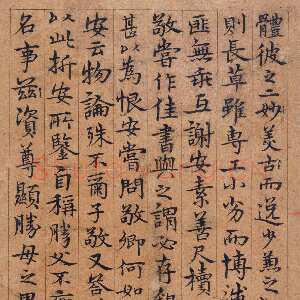 體彼之二妙美古而逸少兼之
則長草雖專工小劣而博涉
匪無乖互謝安素善尺牘
敬嘗作佳書與之謂必存
甚以為恨安嘗問敬卿何如
安云物論殊不爾子敬又答
以此折安所鑒自稱勝父不
名事茲資尊顯勝母之里